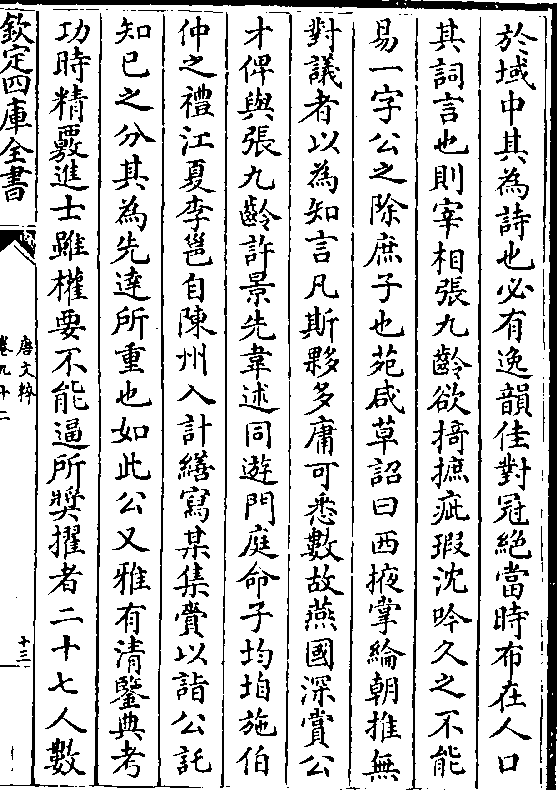 於域中其為詩也必有逸韻佳對冠絶當時布在人口
其詞言也則宰相張九齡欲掎摭疵瑕沈吟久之不能
易一字公之除庶子也苑咸草詔曰西掖掌綸朝推無
對議者以為知言凡斯夥多庸可悉數故燕國深賞公
才俾與張九齡許景先韋述同遊門庭命子均垍施伯
仲之禮江夏李邕自陳州入計繕寫某集賫以詣公託
知已之分其為先達所重也如此公又雅有清鑒典考
功時精覈進士雖權要不能逼所奬擢者二十七人數
欽定四庫全書
唐文粹
卷九十二
十三